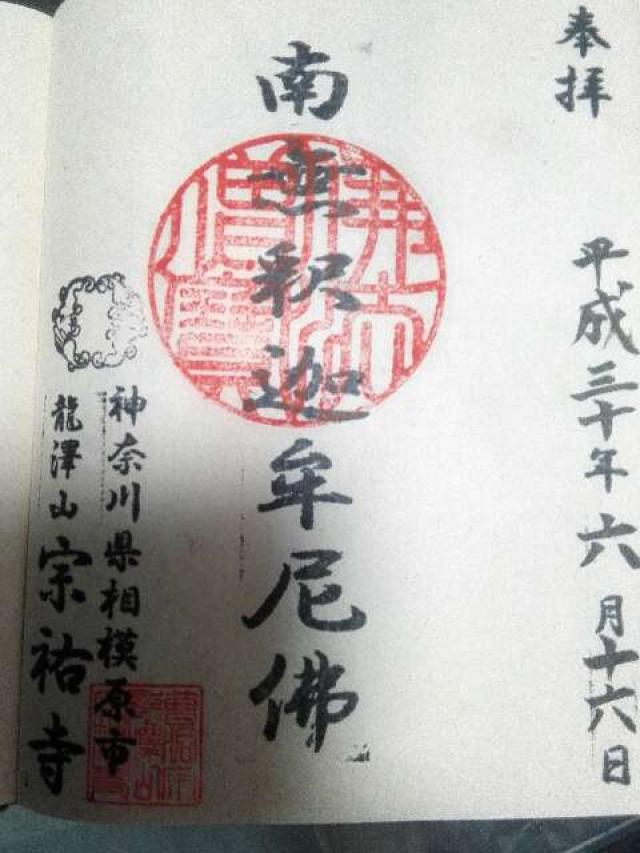 奉拝
平成三十年六月十六日
南無釈迦牟尼佛
神奈川県相模原市
龍澤山宗祐寺